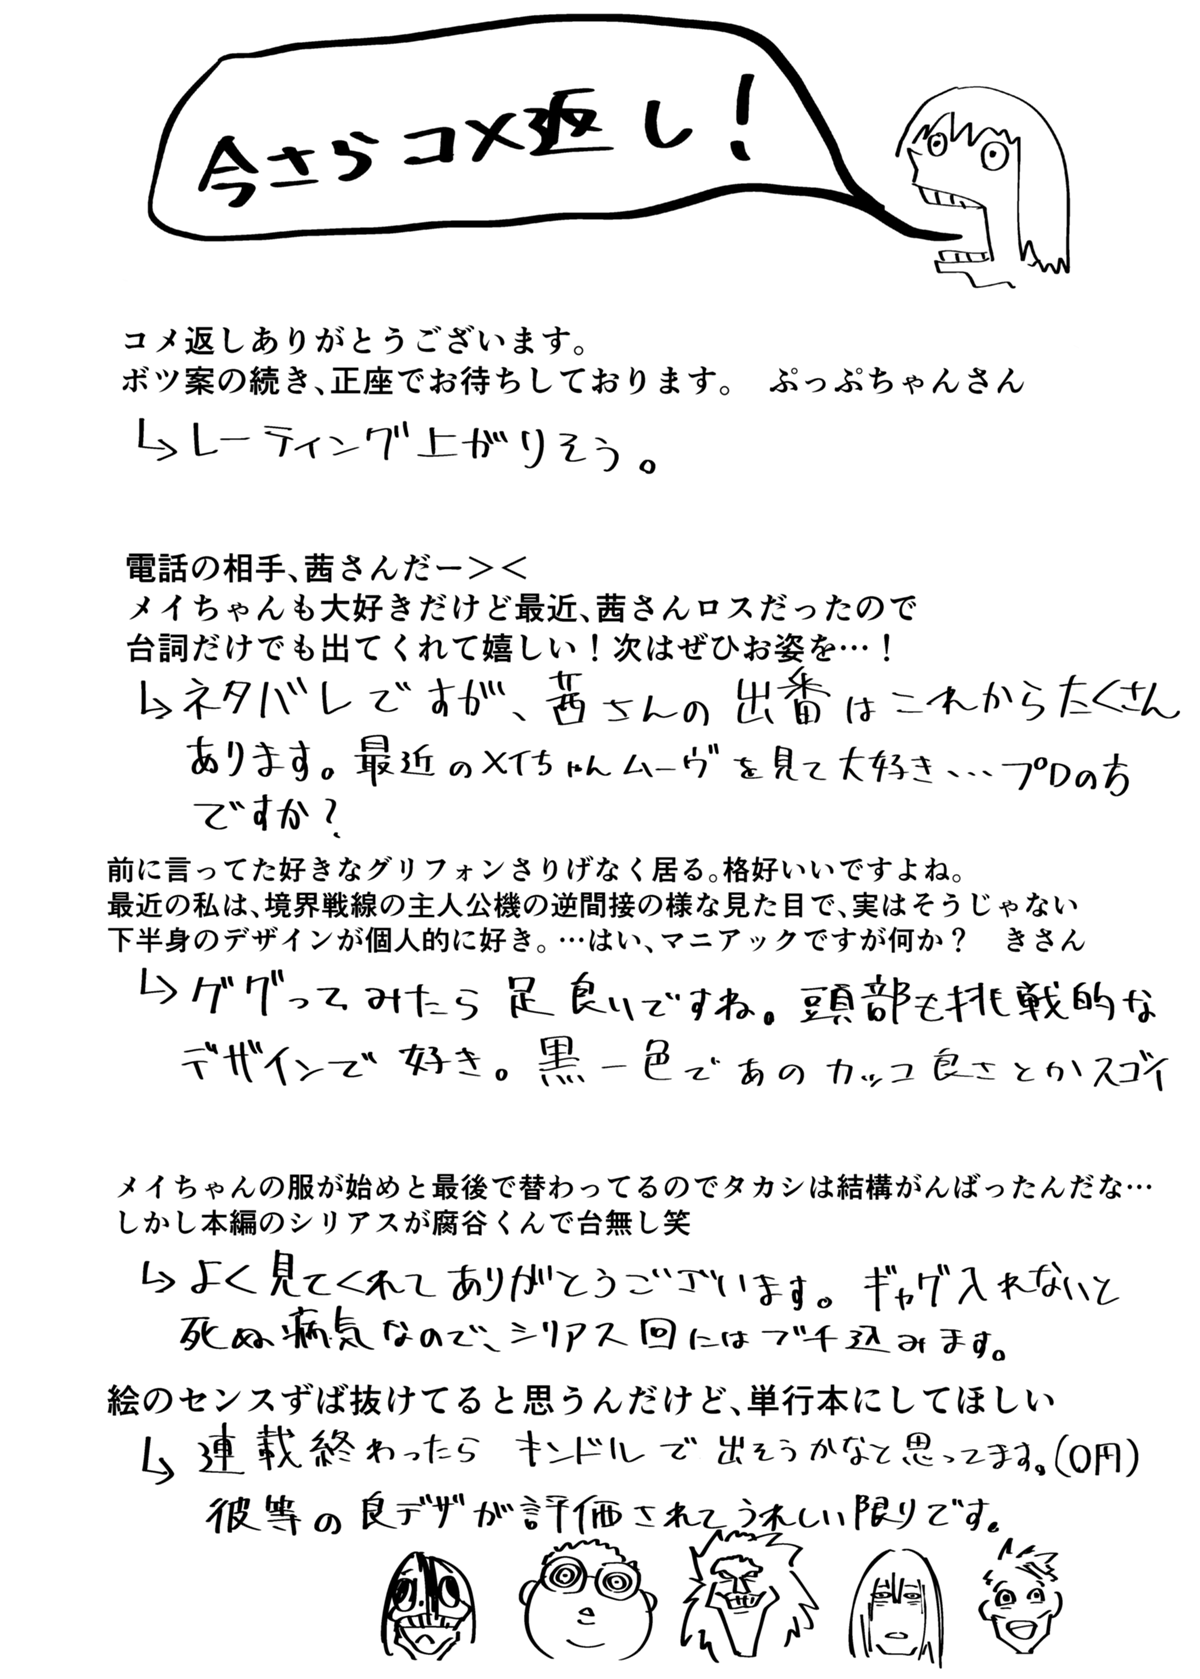 今さらコメ返し！
コメ返しありがとうございます。
ボツ案の続き、正座でお待ちしております。　ぷっぷちゃんさん
↳レーティング上がりそう。
電話の相手、茜さんだー＞＜
メイちゃんも大好きだけど最近、茜さんロスだったので
台詞だけでも出てくれて嬉しい！次はぜひお姿を…！
↳ネタバレですが、茜さんの出番はこれからたくさん
あります。最近のメイちゃんムーヴを見て大好き…プロの方
ですか？
前に言ってた好きなグリフォンさりげなく居る。格好いいですよね。
最近の私は、境界戦線の主人公機の逆間接の様な見た目で、実はそうじゃない
下半身のデザインが個人的に好き。…はい、マニアックですが何か？　きさん
↳ググってみたら足良いですね。頭部も挑戦的な
デザインで好き。黒一色であのカッコ良さとかスゴイ
メイちゃんの服が始めと最後で替わってるのでタカシは結構がんばったんだな…
しかし本編のシリアスが腐谷くんで台無し笑
↳よく見てくれてありがとうございます。ギャグ入れないと
死ぬ病気なので、シリアス回にはブチ込みます。
絵のセンスずば抜けてると思うんだけど、単行本にしてほしい
↳連載終わったらキンドルで出そうかなと思ってます。(0円)
彼等の良デザが評価されてうれしい限りです。